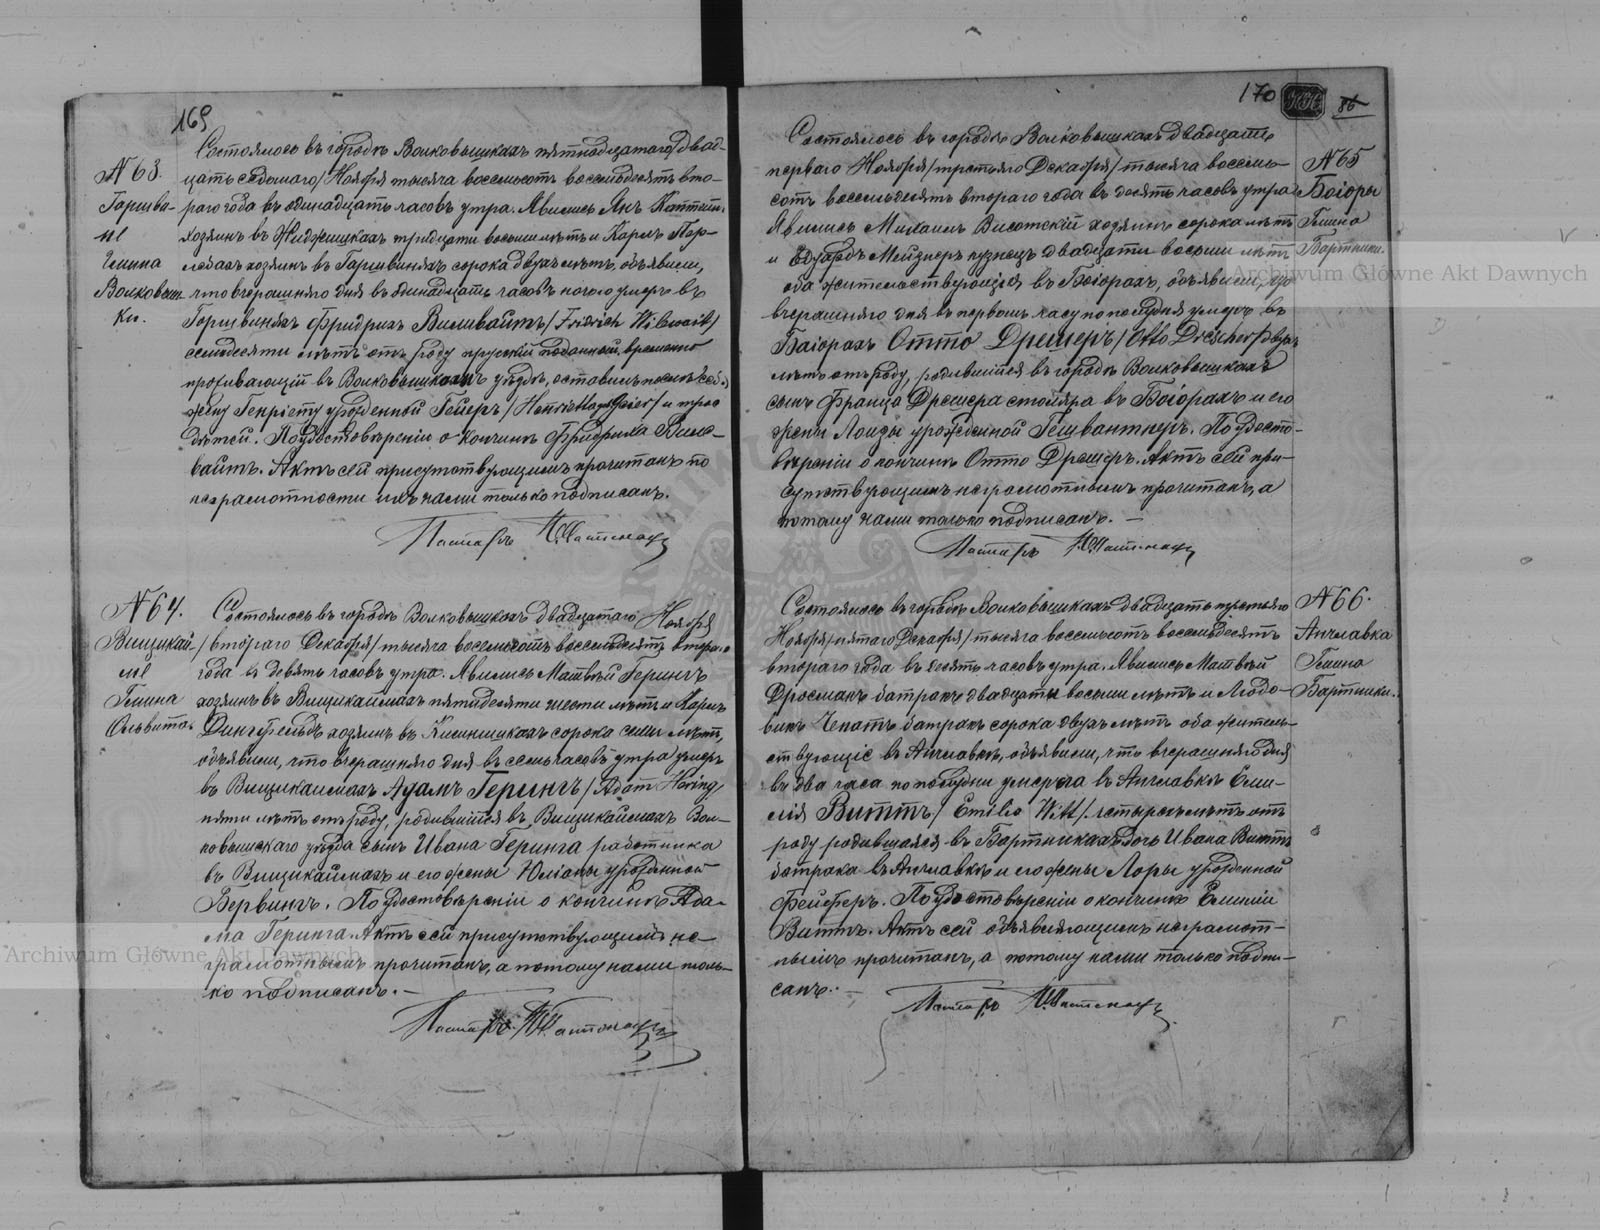 169
№ 63.
Гаршви-
не
Гмина
Волковыш-
ки.
Состоялось въ городѣ Волковышкахъ пятнадцатаго/двад-
цать седьмаго/Ноября тысяча восемьсотъ восемьдесятъ вто-
раго года въ одинадцать часовъ утра. Явились Янъ
хозяинъ въ тридцати восьми лѣтъ и Карлъ
хозяинъ въ Гаршвиняхъ сорока двухъ лѣтъ, объявили,
что вчерашняго дня въ одинадцать часовъ ночи умеръ въ
Гаршвиняхъ Фридрихъ Вилвайтъ/Fridrich Wilwait/
семидесяти лѣтъ отъ роду прусскій подданный временно
проживающій въ Волковышскомъ уѣздѣ, оставилъ послѣ себя
жену Генріету урожденной Гейеръ/Henrietta Geier/ и трое
дѣтей. По удостовѣреніи о кончинѣ Фридриха Вилл-
вайтъ. Актъ сей присутствующимъ прочитанъ по
неграмотности ихъ нами только подписанъ.
Пасторъ
№ 64.
Вищикай-
ме
Гмина
Ольвита
Состоялось въ городѣ Волковышкахъ двадцатаго Ноября
/втораго Декабря/тысяча восемьсотъ восемьдесятъ втораго
года въ девять часовъ утра. Явились Матвѣй Герингъ
хозяинъ въ Вищикаймахъ пятидесяти шести лѣтъ и Карлъ
Дингфельдъ хозяинъ въ сорока семи лѣтъ,
объявили, что вчерашняго дня въ семь часовъ утра умеръ
въ Вищикаймахъ Адамъ Герингъ/Adam Hering/
пяти лѣтъ отъ роду, родившійся въ Вищикаймахъ Вол-
ковышскаго уѣзда сынъ Ивана Геринга работника
въ Вищикаймахъ и его жены Юліаны урожденной
Вервингъ. По удостовѣреніи о кончинѣ Ада-
ма Геринга. Актъ сей присутствующимъ не-
грамотнымъ прочитанъ, а потому нами толь-
ко подписанъ.
Пасторъ
170
86
№ 65
Боіоры
Гмина
Бартники.
Состоялось въ городѣ Волковышкахъ двадцать
перваго Ноября/третьяго Декабря/тысяча восемь-
сотъ восемьдесятъ втораго года въ десять часовъ утра
Явились Михаилъ Висотскій хозяинъ сорока лѣтъ
и Едуардъ Мейзнеръ кузнецъ двадцати восьми лѣтъ
оба жительствующіе въ Боіорахъ, объявили, что
вчерашняго дня въ первомъ часу по полудня умеръ въ
Баіорахъ Отто Дрешеръ/Otto Drescher/двухъ
лѣтъ отъ роду, родившійся въ городѣ Волковышкахъ
сынъ Франца Дрешера столяра въ Боіорахъ и его
жены Лоизы урожденной Гешвантнеръ. По удосто-
вѣреніи о кончинѣ Отто Дрешеръ. Актъ сей при-
сутствующимъ неграмотнымъ прочитанъ, а
потому нами только подписанъ.
Пасторъ
№ 66.
Анчлавка
Гмина
Бартники.
Состоялось въ городѣ Волковышкахъ двадцать третьяго
Ноября/пятаго Декабря/тысяча восемьсотъ восемьдесятъ
втораго года въ десять часовъ утра. Явились Матвѣй
Гросманъ батракъ двадцати восьми лѣтъ и Людо-
викъ Чепатъ батракъ сорока двухъ лѣтъ оба житель-
ствующіе въ Анчлавкѣ, объявили, что вчерашняго дня
въ два часа по полудни умерла въ Анчлавкѣ Еми-
лія Виттъ/Emilia Witt/четырехъ лѣтъ отъ
роду родившаяся въ Бартникахъ дочь Ивана Виттъ
батрака въ Анчлавкѣ и его жены Лоры урожденной
Фейферъ. По удостовѣреніи о кончинѣ Емиліи
Виттъ. Актъ сей объявляющимъ неграмот-
нымъ прочитанъ, а потому нами только подпи-
санъ.
Пасторъ
Archiwum Główne Akt Dawnych
Archiwum Główne Akt Dawnych